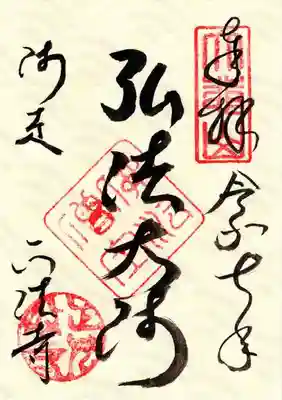 奉拝
令和七年
弘法大師
師走
正法寺